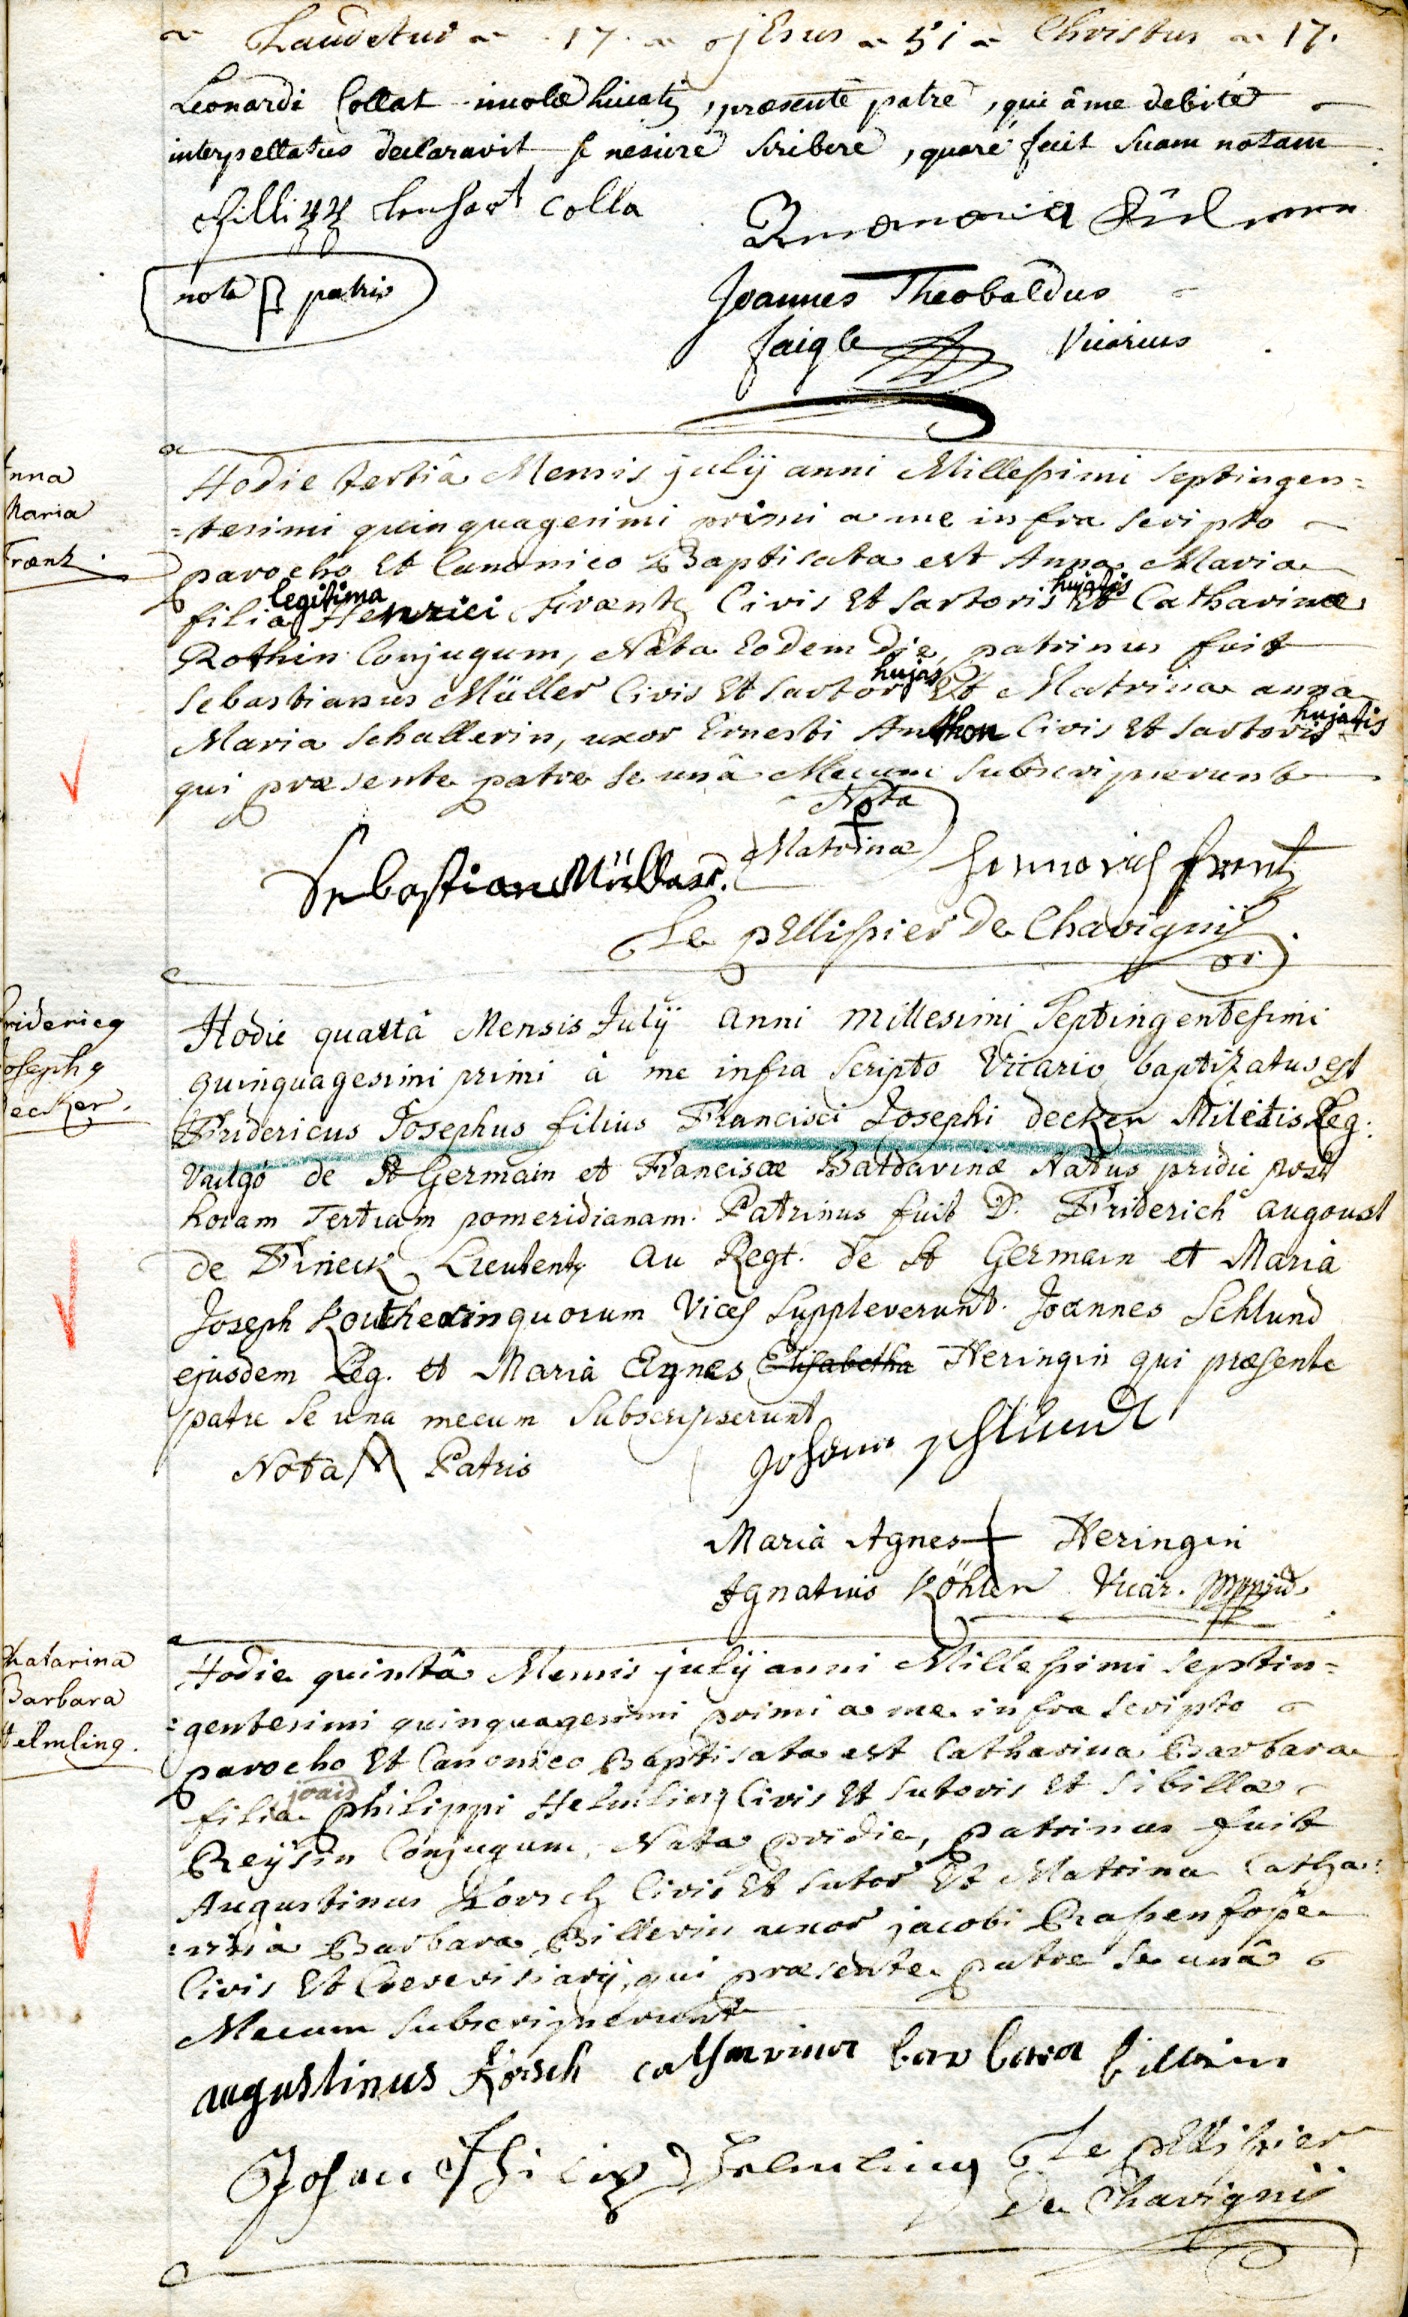 Laudetur 17 jEsus 51 Christus 17.
Leonardi Collat incolæ hujatis, præsente patre, qui â me debite
interpellatus declaravit se nescire scribere, quare fecit suam notam
lenhart Colla
nota patris
Joannes Theobaldus
Jaigle Vicarius
Anna
Maria
Frænz.
Hodie tertiâ Mensis julij anni Millessimi septingen=
=tesimi quinquagesimi primi a me infra scripto
parocho Et Canonico Baptisata est Anna Maria
filia legitima Henrici Fræntz Civis Et sartoris hujatis Et Catharinæ
Rothin Conjugum, Nata Eodem Die, patrinus fuit
Sebastianus Müller Civis Et sartor hujas Et Matrina anna
Maria Schallerin, uxor Ernesti Anthon Civis Et sartoris hujatis
qui præsente patre se unâ Mecum subscripserunt
Nota
Matrinæ
Sebastian Müller. Hennerich Frentz
Le pEllissier De Chavignij
Fridericq
Josephq
Decker.
Hodie quartâ Mensis Julÿ anni millesimi Septingentesimi
quinquagesimi primi â me infra scripto Vicario baptizatus est
Fridericus Josephus filius Francisci Josephi decker Militis Reg:
Vulgò de St Germain et Franciscæ Baldavinæ Natus pridie post
horam Tertiam pomeridianam. Patrinus fuit D. Friderich august
de Fineck Lieutent au Regt. de St Germain et Maria
Joseph quorum Vices Suppleverunt. Joannes Schlund
ejusdem Reg. et Maria Egnes Elisabetha Heringin qui præsente
patre se una mecum Subscripserunt
Nota Patris
Johann schlundt
Maria Agnes + Heringin
Ignatius Köhler Vicar. mppria
Chatarina
Barbara
Helmling.
Hodie quintâ Mensis julij anni Millessimi septin=
=gentesimi quinquagesimi primi a me infra scripto
parocho Et Canonico Baptisata est Catharina Barbara
filia joais philippi Helmling Civis Et sutoris Et Sibillæ
Reysin Conjugum, Nata pridie, patrinus fuit
Augustinus Korsch Civis Et sutor Et Matrina Catha=
=rina Barbara Billerin uxor jacobi
Civis Et Cerevisiarij, qui præsente patre se unâ
Mecum subscripserunt
augustinus Korsch catharina barbara billerin
Johann Philip Helmling Le pEllissier
De Chavignij